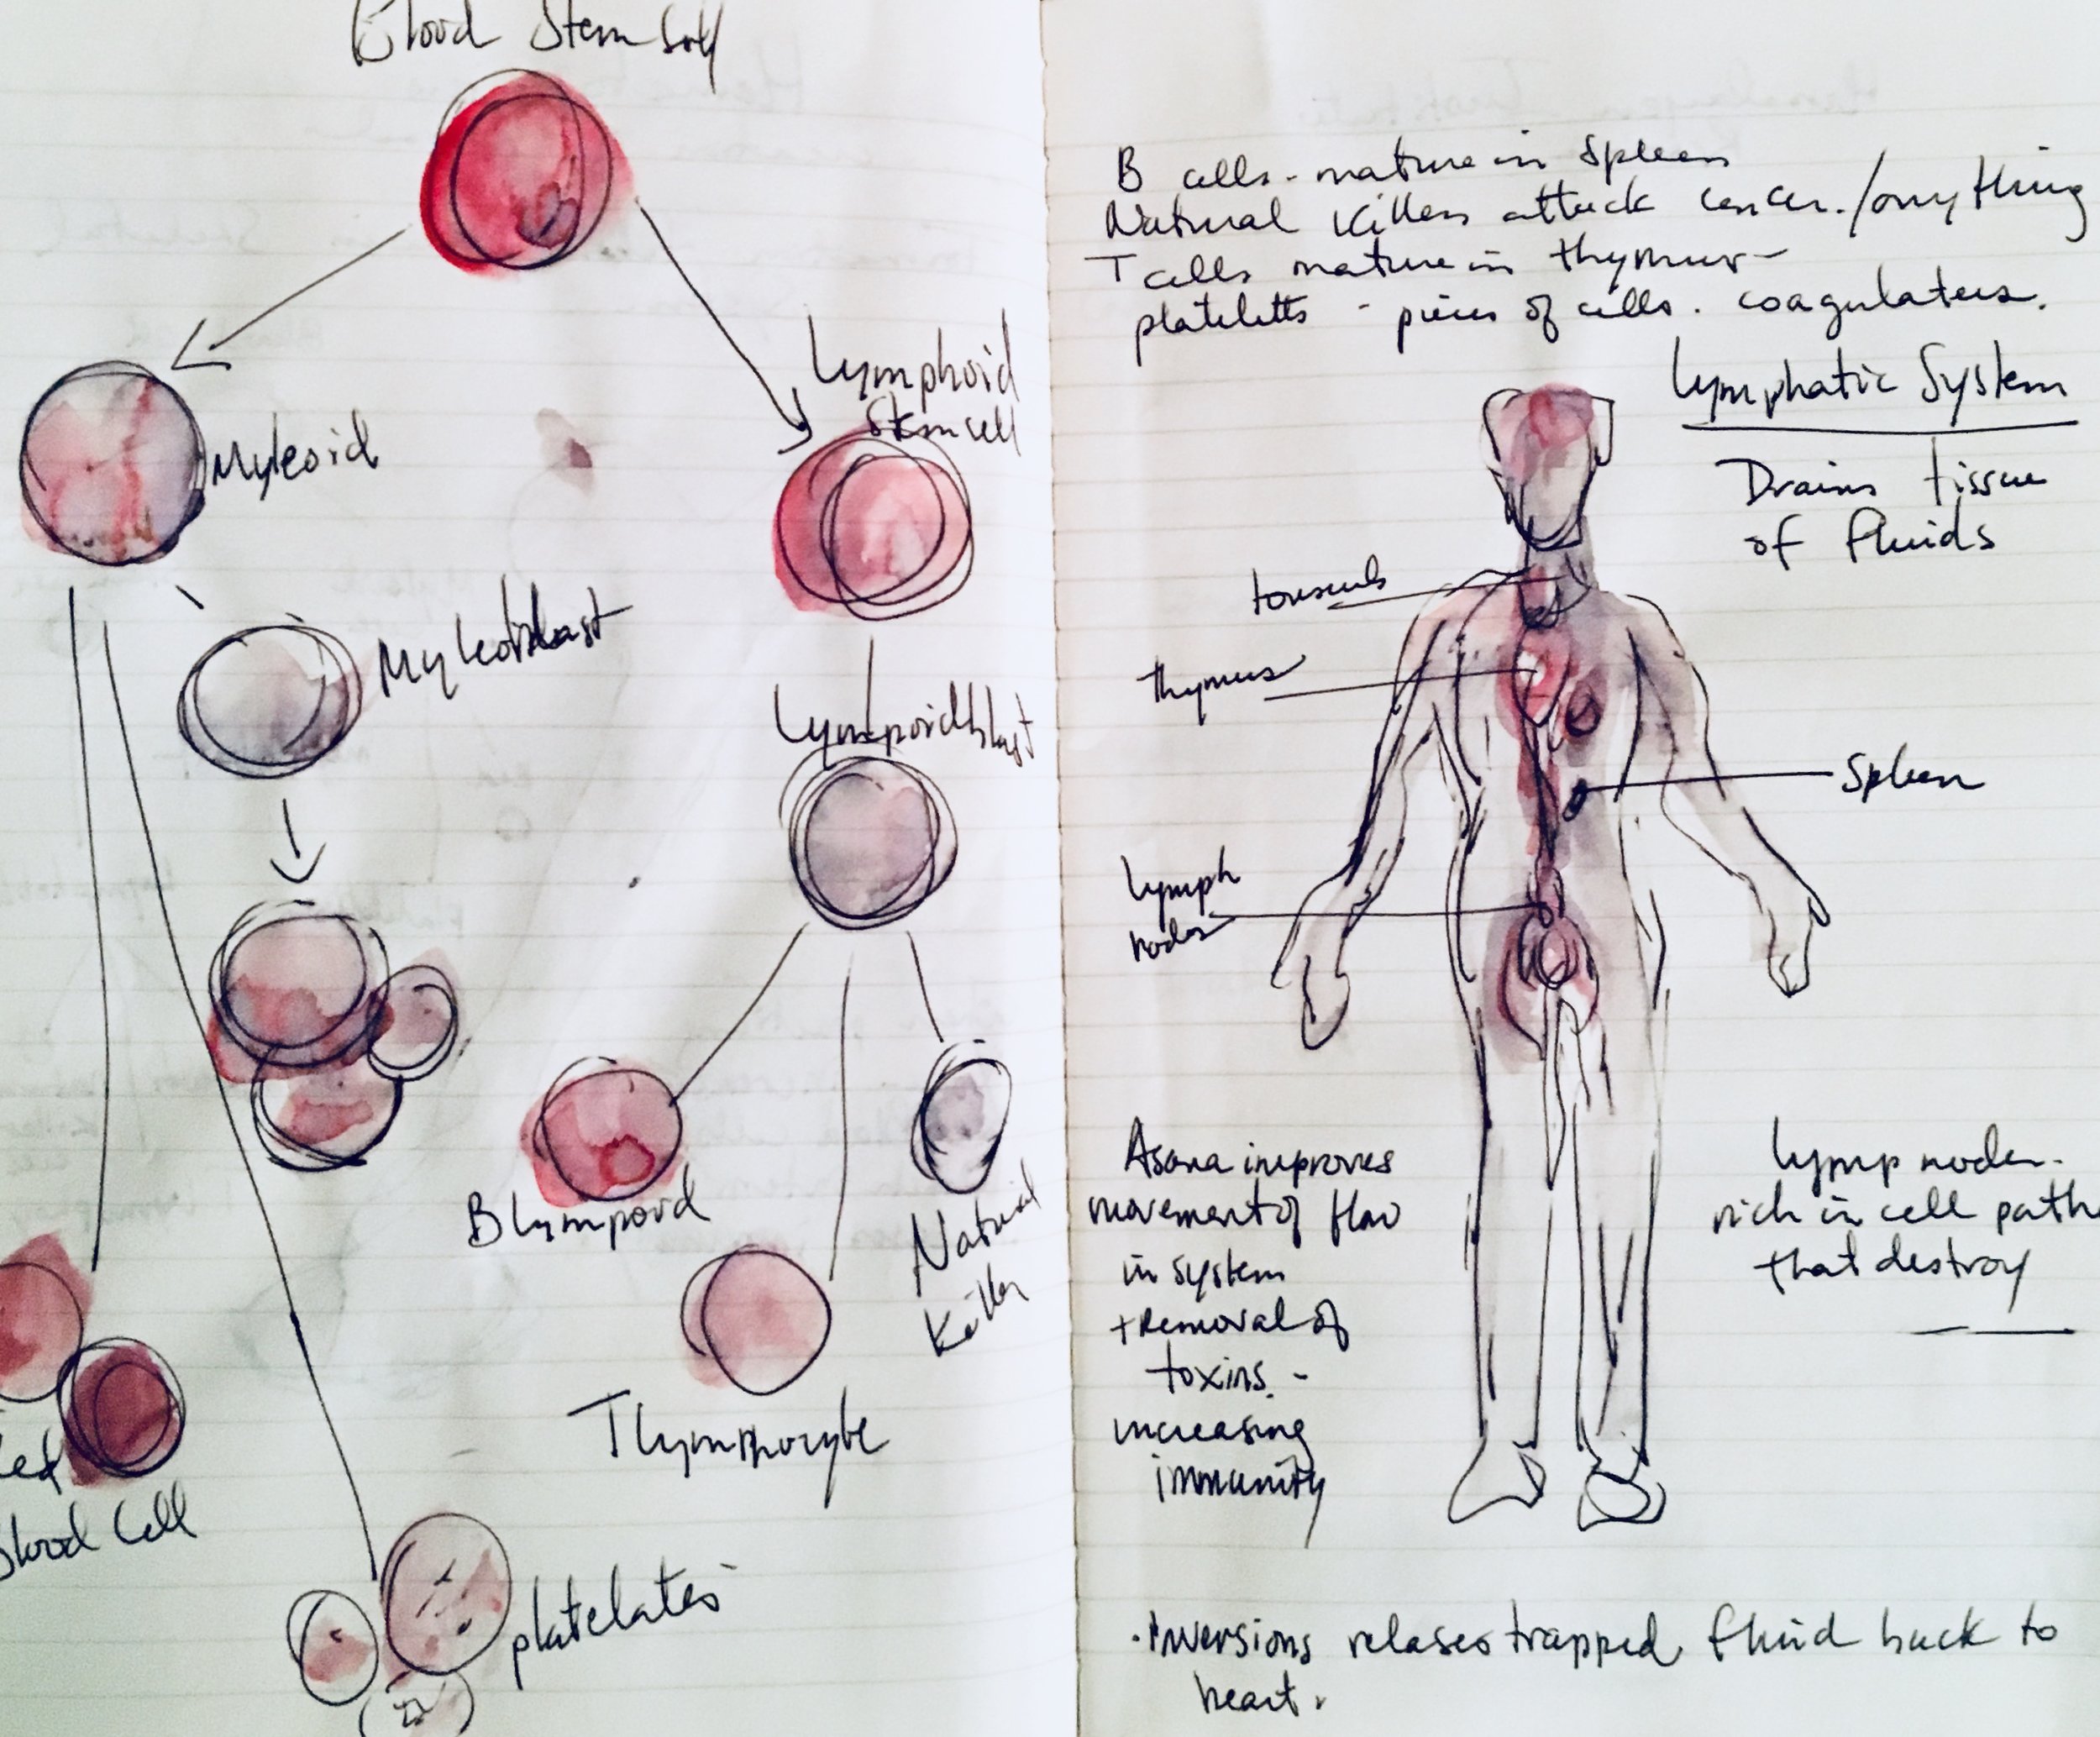 Blood Stem Cell
Myleoid
Lymphoid
Stem cell
Myleoblast
Lymphoidblast
B Lympoid
Natural
Killer
T Lymphocyte
Red
Blood Cell
platelates
B cells - mature in Spleen
Natural Killers attack cancer. / anything
T cells mature in thymus -
platelets - pieces of cells. coagulaters.
Lymphatic System
Drains tissue
of fluids
tonsuls
thymus
Spleen
Lymph
nodes
Asana improves
movement of flow
in system
+ removal of
toxins. -
increasing
immunity
Lymp nodes -
rich in cell path
that destroy
. Inversions relases trapped fluid back to
heart.